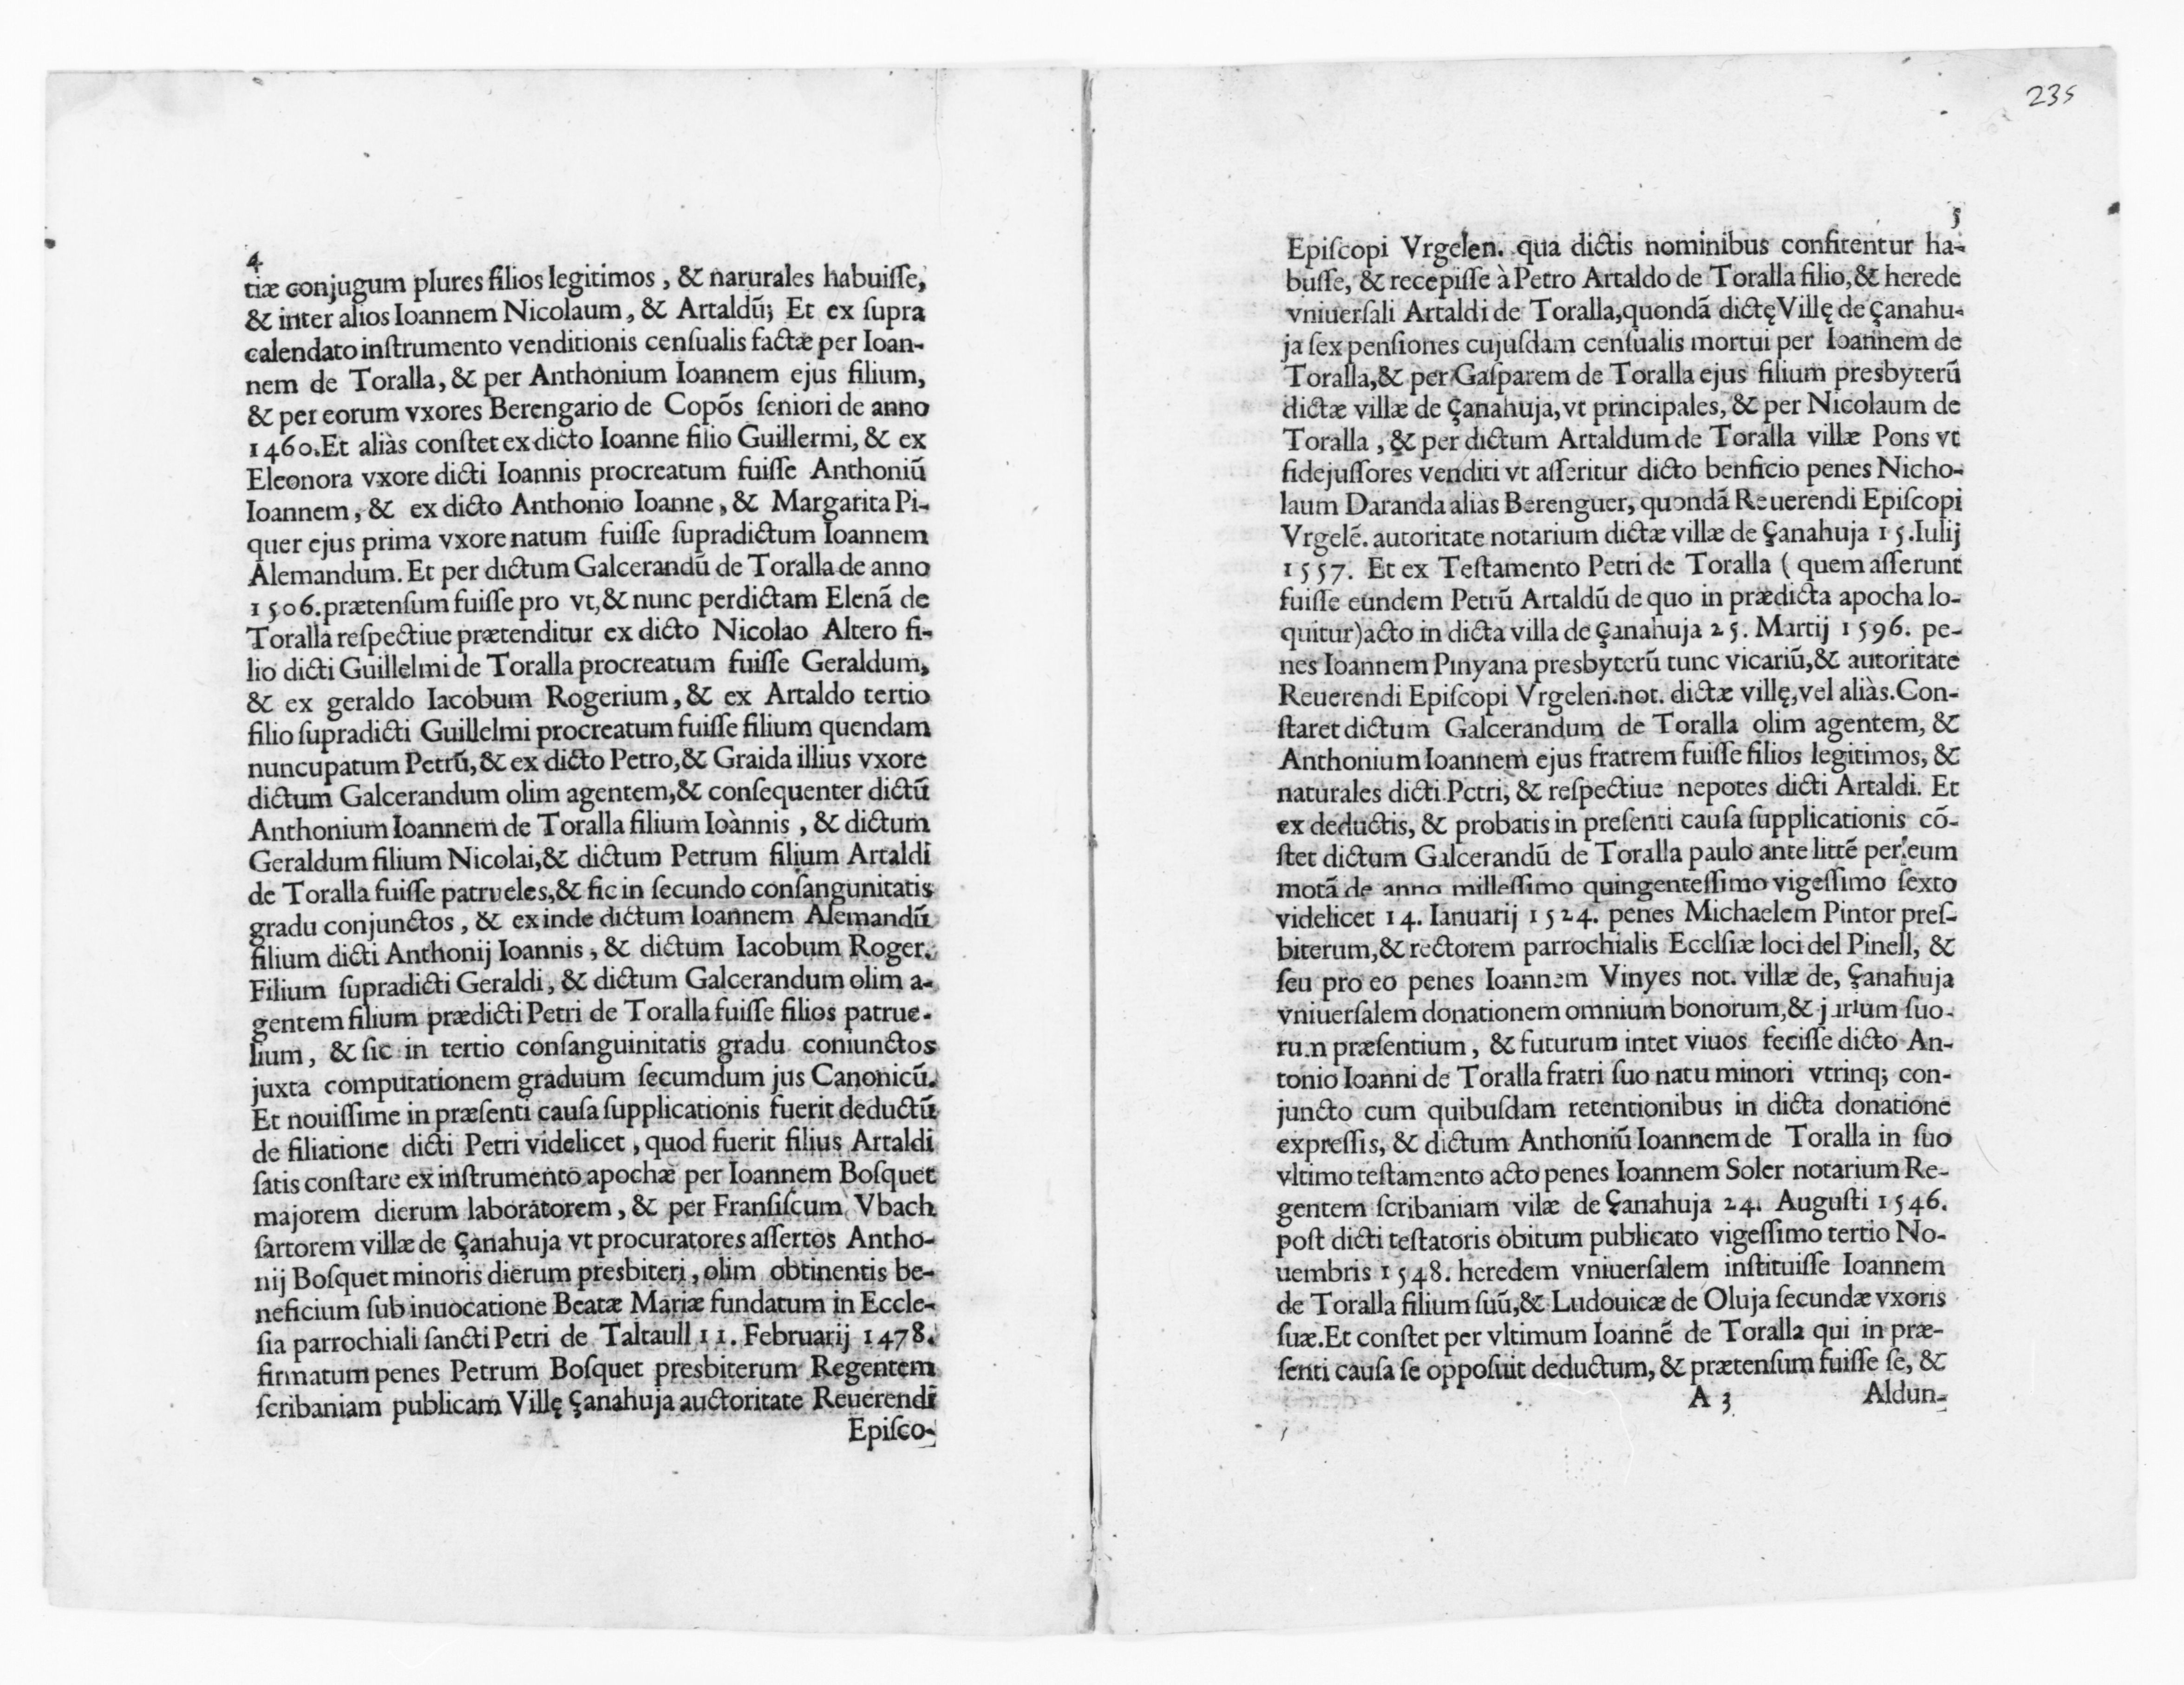 4
tiæ conjugum plures filios legitimos, & narurales habuiſſe,
& inter alios Ioannem Nicolaum, & Artaldū; Et ex ſupra
calendato inſtrumento venditionis cenſualis factæ per Ioan-
nem de Toralla, & per Anthonium Ioannem ejus filium,
& per eorum vxores Berengario de Copōs ſeniori de anno
1460. Et aliàs conſtet ex dicto Ioanne filio Guillermi, & ex
Eleonora vxore dicti Ioannis procreatum fuiſſe Anthoniū
Ioannem, & ex dicto Anthonio Ioanne, & Margarita Pi-
quer ejus prima vxore natum fuiſſe ſupradictum Ioannem
Alemandum. Et per dictum Galcerandū de Toralla de anno
1506. prætenſum fuiſſe pro vt, & nunc perdictam Elenā de
Toralla reſpectiue prætenditur ex dicto Nicolao Altero fi-
lio dicti Guillelmi de Toralla procreatum fuiſſe Geraldum,
& ex geraldo Iacobum Rogerium, & ex Artaldo tertio
filio ſupradicti Guillelmi procreatum fuiſſe filium quendam
nuncupatum Petrū, & ex dicto Petro, & Graida illius vxore
dictum Galcerandum olim agentem, & conſequenter dictū
Anthonium Ioannem de Toralla filium Ioànnis, & dictum
Geraldum filium Nicolai, & dictum Petrum filium Artaldi
de Toralla fuiſſe patrueles, & ſic in ſecundo conſangunitatis
gradu conjunctos, & exinde dictum Ioannem Alemandū
filium dicti Anthonij Ioannis, & dictum Iacobum Roger.
Filium ſupradicti Geraldi, & dictum Galcerandum olim a-
gentem filium prædicti Petri de Toralla fuiſſe filios patrue-
lium, & ſic in tertio conſanguinitatis gradu coniunctos
juxta computationem graduum ſecumdum jus Canonicū.
Et nouiſſime in præſenti cauſa ſupplicationis fuerit deductū
de filiatione dicti Petri videlicet, quod fuerit filius Artaldi
ſatis conſtare ex inſtrumento apochæ per Ioannem Boſquet
majorem dierum laboratorem, & per Franſiſcum Vbach
ſartorem villæ de Çanahuja vt procuratores aſſertos Antho-
nij Boſquet minoris dierum presbiteri, olim obtinentis be-
neficium ſub inuocatione Beatæ Mariæ fundatum in Eccle-
ſia parrochiali ſancti Petri de Taltaull 11. Februarij 1478.
firmatum penes Petrum Boſquet presbiterum Regentem
ſcribaniam publicam Villę Çanahuja auctoritate Reuerendi
Epiſco-
235
5
Epiſcopi Vrgelen. qua dictis nominibus confitentur ha-
buſſe, & recepiſſe à Petro Artaldo de Toralla filio, & herede
vniuerſali Artaldi de Toralla, quondā dictę Villę de Çanahu-
ja ſex penſiones cujuſdam cenſualis mortui per Ioannem de
Toralla, & per Gaſparem de Toralla ejus filium presbyterū
dictæ villæ de Çanahuja, vt principales, & per Nicolaum de
Toralla, & per dictum Artaldum de Toralla villæ Pons vt
fidejuſſores venditi vt aſſeritur dicto benficio penes Nicho-
laum Daranda aliàs Berenguer, quondā Reuerendi Epiſcopi
Vrgelē. autoritate notarium dictæ villæ de Çanahuja 15. Iulij
1557. Et ex Teſtamento Petri de Toralla ( quem aſſerunt
fuiſſe eundem Petrū Artaldū de quo in prædicta apocha lo-
quitur) acto in dicta villa de Çanahuja 25. Martij 1596. pe-
nes Ioannem Pinyana presbyterū tunc vicariū, & autoritate
Reuerendi Epiſcopi Vrgelen. not. dictæ villę, vel aliàs. Con-
ſtaret dictum Galcerandum de Toralla olim agentem, &
Anthonium Ioannem ejus fratrem fuiſſe filios legitimos, &
naturales dicti Petri, & reſpectiue nepotes dicti Artaldi. Et
ex deductis, & probatis in preſenti cauſa ſupplicationis cō-
ſtet dictum Galcerandū de Toralla paulo ante littē per eum
motā de anno milleſſimo quingenteſſimo vigeſſimo ſexto
videlicet 14. Ianuarij 1524. penes Michaelem Pintor preſ-
biterum, & rectorem parrochialis Ecclſiæ loci del Pinell, &
ſeu pro eo penes Ioannem Vinyes not. villæ de, Çanahuja
vniuerſalem donationem omnium bonorum, & jurium ſuo-
rum præſentium, & futurum intet viuos feciſſe dicto An-
tonio Ioanni de Toralla fratri ſuo natu minori vtrinq; con-
juncto cum quibuſdam retentionibus in dicta donatione
expreſſis, & dictum Anthoniū Ioannem de Toralla in ſuo
vltimo teſtamento acto penes Ioannem Soler notarium Re-
gentem ſcribaniam vilæ de Çanahuja 24. Auguſti 1546.
poſt dicti teſtatoris obitum publicato vigeſſimo tertio No-
uembris 1548. heredem vniuerſalem inſtituiſſe Ioannem
de Toralla filium ſuū, & Ludouicæ de Oluja ſecundæ vxoris
ſuæ. Et conſtet per vltimum Ioannē de Toralla qui in præ-
ſenti cauſa ſe oppoſuit deductum, & prætenſum fuiſſe ſe, &
A 3 Aldun-